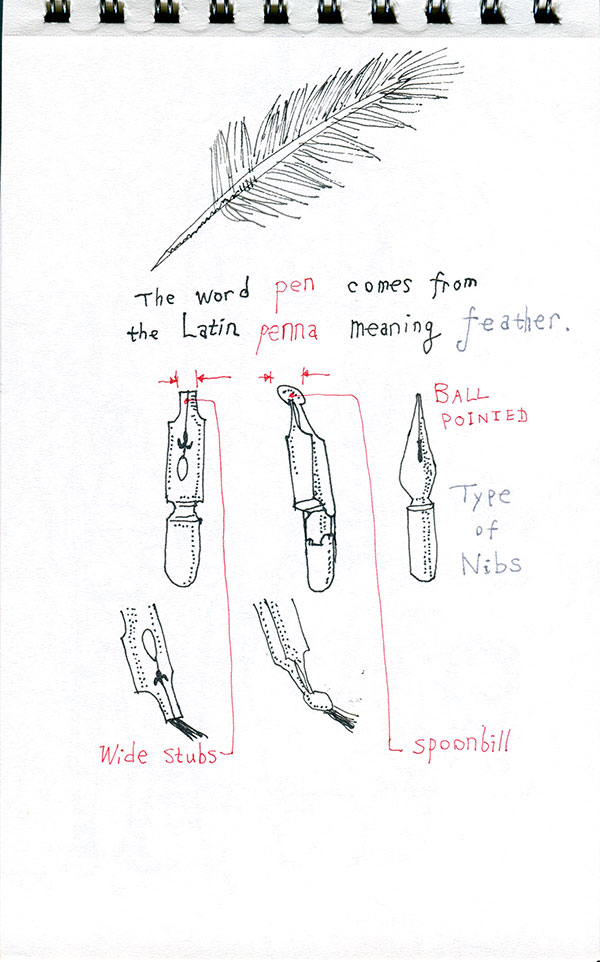 The word pen comes from
the Latin penna meaning feather.
BALL
POINTED
Type
of
Nibs
Wide Stubs
Spoonbill